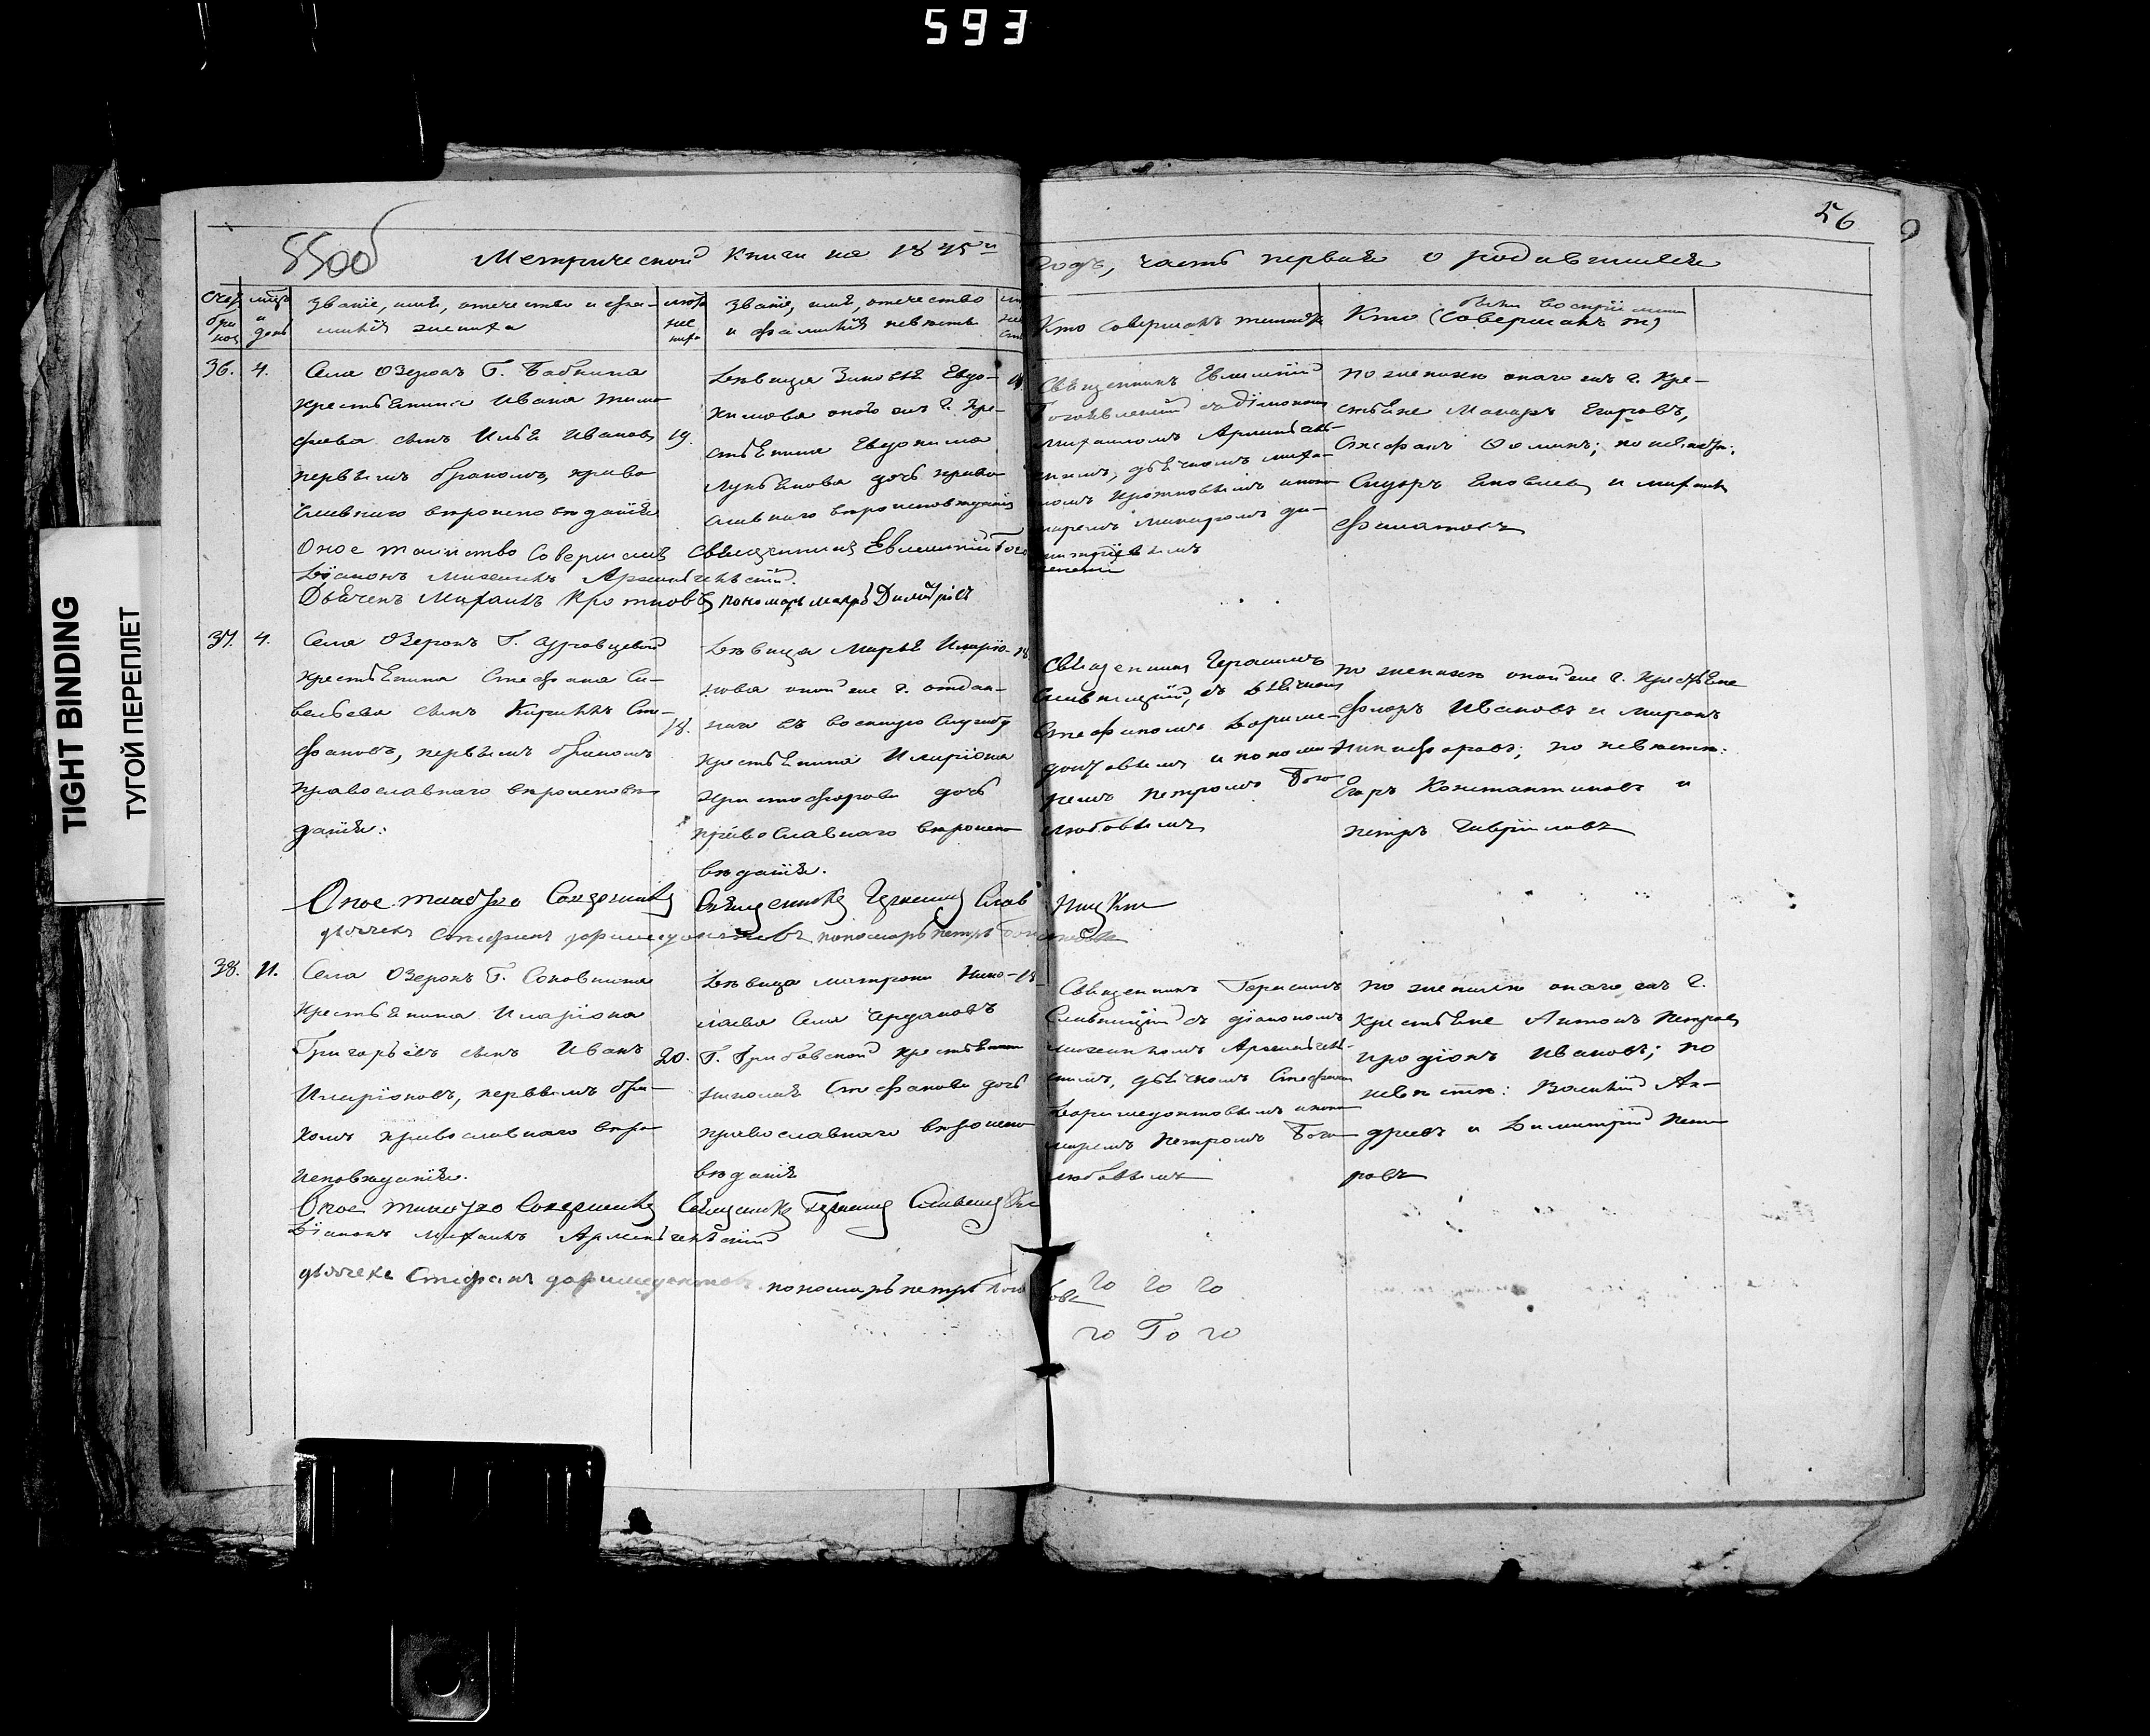 593
56
55об
Метрической книги на 1845й годъ, часть первая о родившихся
мѣць и день
званіе, имя, отечество и фамилія жениха
званіе, имя, отечество и фамилія невѣсты
Кто совершалъ таинство
Кто (совершалъ т)
были воспріемники
36. 4.
Села Озеронъ Г. Бабкина
крестьянина Ивана Тимо-
феева сынъ Илья Ивановъ
первымъ бракомъ, право
славнаго вѣроисповѣданія
19.
Дѣвица Зиновья Евдо-
кимова онаго жъ г. кре-
стьянина Евдокима
Лукьянова дочь право
славнаго вѣроисповѣданія
Священникъ Евлампій
Богоявленскій съ діакономъ
Михаиломъ
дьячкомъ Миха-
иломъ Кротковымъ и поно
маремъ Макаромъ Ди-
митріевымъ
По женихѣ онаго жъ г. кре-
стьяне Макаръ Егоровъ,
Стефанъ Фоминъ; по невѣстѣ:
Сидоръ Яковлевъ и Михаилъ
Филатовъ
Оное таинство совершалъ священникъ Евлампій
Діаконъ Михаилъ
Дьячекъ Михаилъ Кротковъ пономарь Макаръ Димитріевъ
37. 4.
Села Озеронъ Г.
крестьянина Стефана Са-
вельева сынъ Кириллъ Сте-
фановъ, первымъ бракомъ
православнаго вѣроисповѣ
данія.
18.
Дѣвица Марья Иларіо-
нова оной же г. отдан-
наго въ военную службу
крестьянина Иларіона
Христофорова дочь
православнаго вѣроиспо
вѣданія.
18.
Священникъ Герасимъ
Славницкій, съ дьячкомъ
Стефаномъ Дориме-
донтовымъ и понома-
ремъ Петромъ Бого
любовымъ
по женихѣ оной же г. крестьяне
Флоръ Ивановъ и Миронъ
Никифоровъ; по невѣстѣ:
Егоръ Константиновъ и
Петръ Гавриловъ
Оное таинство совершилъ Священникъ Герасимъ Славницкій
дьячекъ Стефанъ Доримедонтовъ пономарь Петръ Боголюбовъ
38. 11.
Села Озеронъ Г. Соковнина
крестьянина Иларіона
Григорьевъ сынъ Иванъ
Иларіоновъ, первымъ бра-
комъ православнаго вѣро
исповѣданія.
20.
Дѣвица Матрона Нико-
лаева Села Чердаковъ
Г. Грибовской крестьянина
Николая Стефанова дочь
православнаго вѣроиспо
вѣданія
18
Священникъ Герасимъ
Славницкій съ діакономъ
Михаиломъ
дьячкомъ Стефаномъ
Доримедонтовымъ и поно
маремъ Петромъ Бого
любовымъ
по женихѣ онаго жъ г.
крестьяне Антонъ Петровъ
Иродіонъ Ивановъ; по
невѣстѣ: Василій Ан-
дреевъ и Димитрій Пет
ровъ
Оное таинство совершилъ Священникъ Герасимъ Славницкій
Діаконъ Михаилъ
дьячекъ Стефанъ Доримедонтовъ пономарь Петръ Боголюбовъ
го го го
го Го го
TIGHT BINDING
ТУГОЙ ПЕРЕПЛЕТ